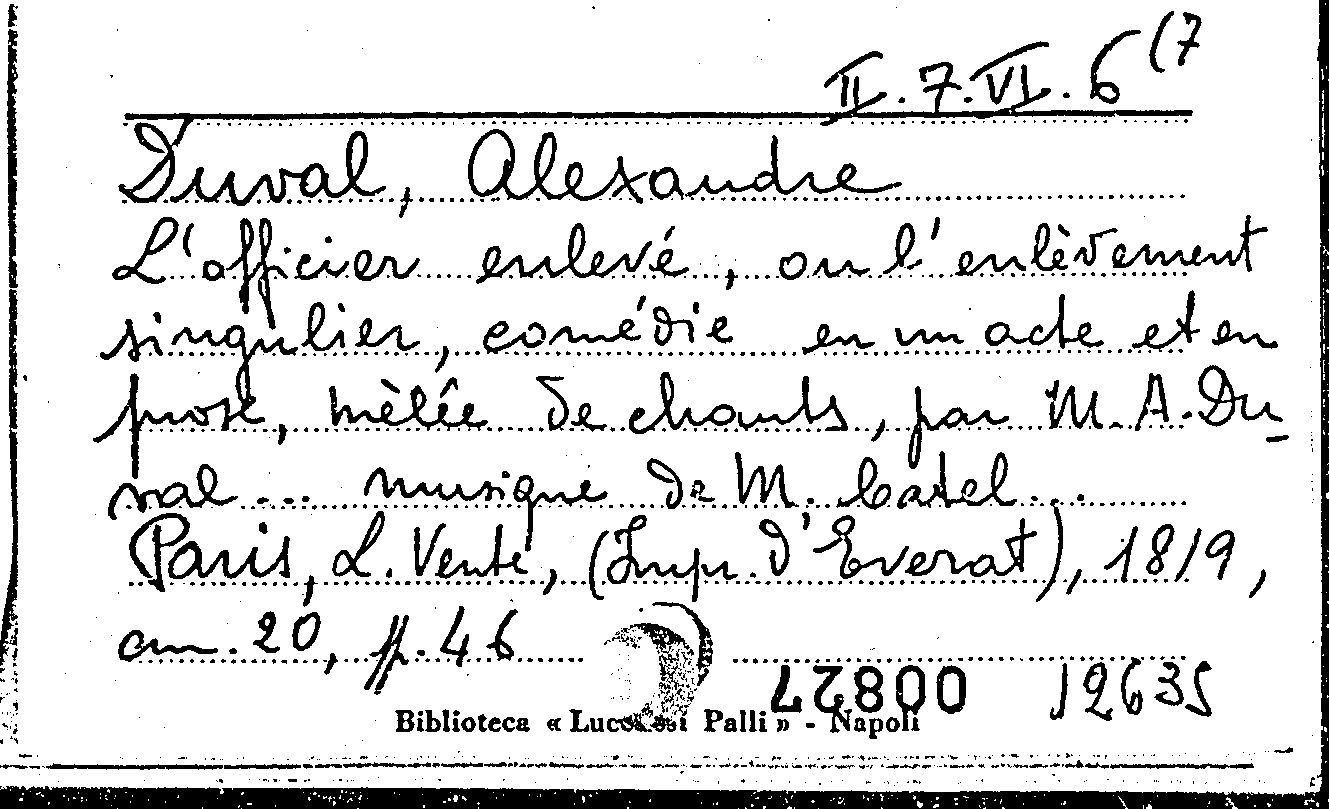 II.7.VI.6(7
Duval, Alexandre
L'officier enlevé, ou l'enlèvement
singulier, comédie en un acte et en
prose, mèlée de chants, par M. A. Du-
val ... musique de M. Catel...
Paris, L. Vente, (Imp. d'Everat), 1819,
cm. 20, pp. 46
00827 12635
Biblioteca « Lucchesi Palli » - Napoli